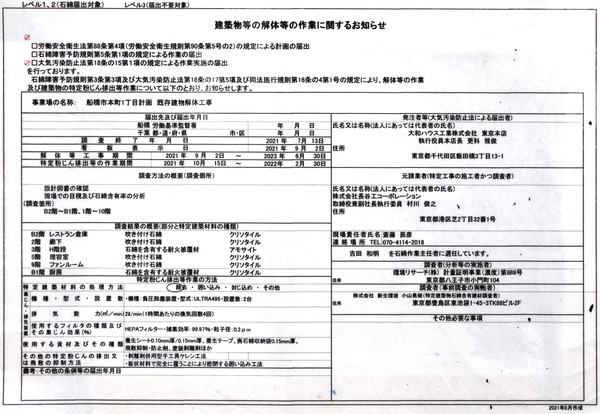 レベル1、2(石綿届出対象) レベル3(届出不要対象)
建築物等の解体等の作業に関するお知らせ
□労働安全衛生法第88条第4項(労働安全衛生規則第90条第5号の2)の規定による計画の届出
□石綿障害予防規則第5条第1項の規定による作業の届出
□大気汚染防止法第18条の15第1項の規定による作業実施の届出
を行っております。
石綿障害予防規則第3条第3項及び大気汚染防止法第18条の17第5項及び同法施行規則第16条の4第1号の規定により、解体等の作業
及び建築物の特定粉じん排出等作業について以下のとおり、お知らせします。
事業場の名称: 船橋市本町1丁目計画 既存建物解体工事
届出先及び届出年月日
船橋 労働基準監督署 年 月 日
千葉 都・道・府・県 市・区 年 月 日
調査終了年月日 2021年 7月 13日
看板表示日 2021年 9月 2日
解体等工事期間 2021年 9月 2日 ～ 2023年 6月 30日
特定粉じん排出等の作業期間 2021年 10月 15日 ～ 2022年 2月 30日
調査方法の概要(調査箇所)
設計図書の確認
現場での目視及び石綿含有率の分析
(調査箇所)
B2階～B1階、1階～10階
調査結果の概要(部分と特定建築材料の種類)
B2階 レストラン倉庫 吹き付け石綿 クリソタイル
2階 廊下 吹き付け石綿 クリソタイル
3階 H階段 石綿を含有する耐火被覆材 アモサイト
5階 理容室 吹き付け石綿 クリソタイル
9階 ファンルーム 吹き付け石綿 クリソタイル
B1階 厨房 石綿を含有する耐火被覆材 クリソタイル
特定粉じん排出等作業の方法
特定建築材料の処理方法 除去・囲い込み・封じ込め・その他
機種・型式・設置数 機種:負圧除塵装置・型式:ULTR495・設置数:2台
排気能力(㎥/min) 28/min(1時間あたりの換気回数4回)
使用するフィルタの種類及びその集じん効率(%) HEPAフィルター・捕集効率:99.97%・粒子径:0.3μm
使用する資材及びその種類 養生シート0.10mm厚/0.15mm厚、養生テープ、廃石綿収納袋0.15mm厚、
飛散抑制・防止剤、塗装剥離剤ほか
その他の特定粉じんの排出又は飛散の抑制方法 ・剥離剤併用型手工具ケレン工法
・板状材料で完全に覆うことにより密閉する囲い込み工法
備考:その他の条例等の届出年月日
発注者等(大気汚染防止法による届出者)
氏名又は名称(法人にあっては代表者の氏名)
大和ハウス工業株式会社 東京本店
執行役員本店長 更科 雅俊
住所
東京都千代田区飯田橋3丁目13-1
元請業者(特定工事の施工者かつ調査者)
氏名又は名称(法人にあっては代表者の氏名)
株式会社長谷工コーポレーション
取締役兼副社長執行役員 村川 俊之
住所
東京都港区芝2丁目32番1号
現場責任者氏名 斎藤 辰彦
連絡場所 TEL.070-4114-2018
吉田 和明 を石綿作業主任者に選任しています。
調査者(分析等の実施者)
環境リサーチ(株) 計量証明事業(濃度)第888号
住所 東京都八王子市小門町104
調査者(事前調査の実施者)
株式会社 新生環境 小山勇樹(特定建築物石綿含有建材調査者)
住所 東京都豊島区東池袋1-45-3TK88ビル2F
その他必要な事項
2021年8月作成